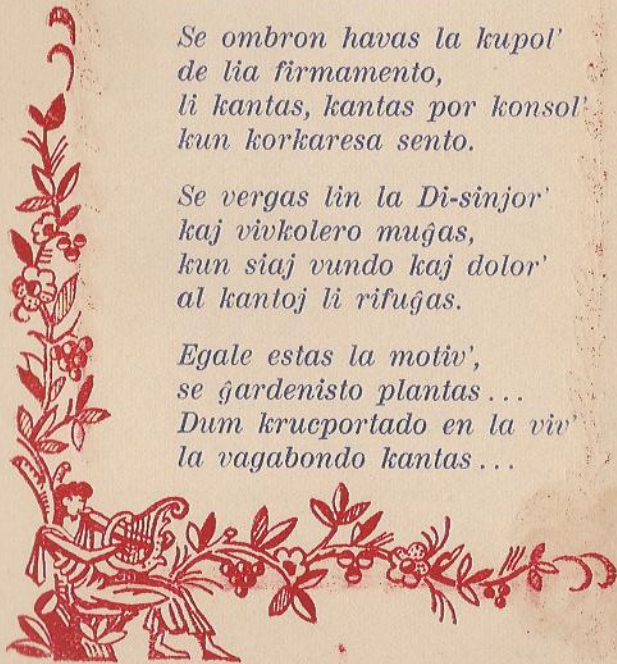 Se ombron havas la kupol'
de lia firmamento,
li kantas, kantas por konsol'
kun korkaresa sento.

Se vergas lin la Di-sinjor'
kaj vivkolero muĝas,
kun siaj vundo kaj dolor'
al kantoj li rifuĝas.

Egale estas la motiv',
se ĝardenisto plantas...
Dum krucportado en la viv'
la vagabondo kantas...